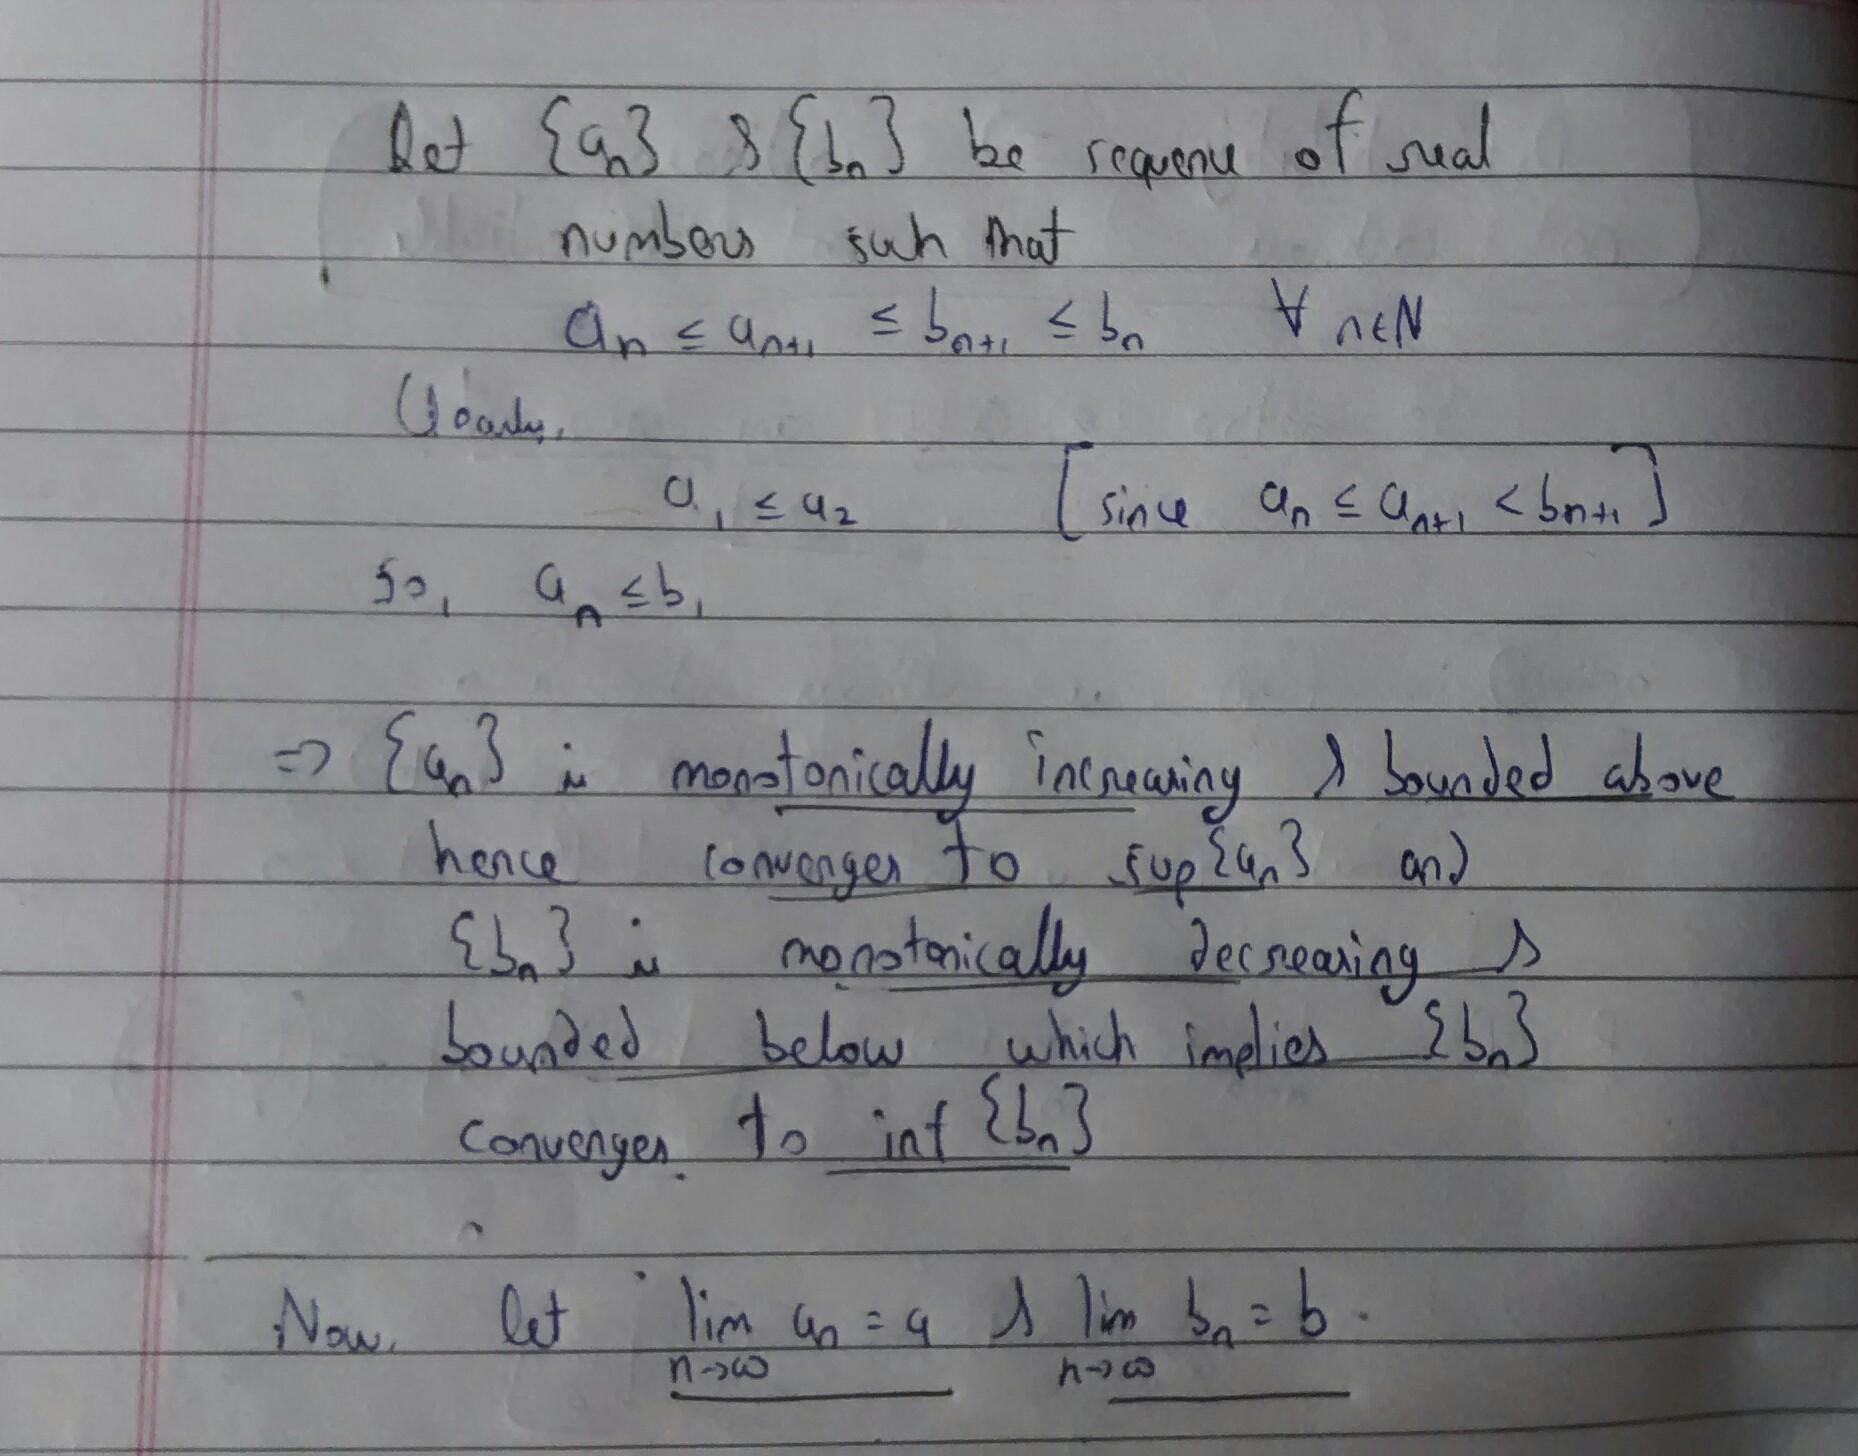 Let {aₙ} & {bₙ} be sequence of real
numbers such that
aₙ ≤ aₙ₊₁ ≤ bₙ₊₁ ≤ bₙ ∀ n∈N
Clearly,
a₁ ≤ a₂ [since aₙ ≤ aₙ₊₁ < bₙ₊₁]
So, aₙ ≤ b₁
=> {aₙ} is monotonically increasing & bounded above
hence converges to sup{aₙ} and
{bₙ} is monotonically decreasing &
bounded below which implies {bₙ}
converges to inf {bₙ}
Now, let lim aₙ = a & lim bₙ = b.
n→∞ n→∞